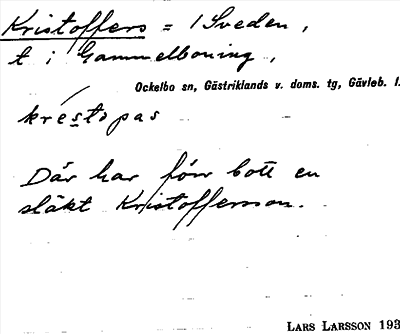 Kristoffers = I Sveden,
t i Gammelboning,
Ockelbo sn, Gästriklands v. doms. tg, Gävleb. l.
kréstopas
Där har förr bott en
släkt Kristofferson.
LARS LARSSON 193